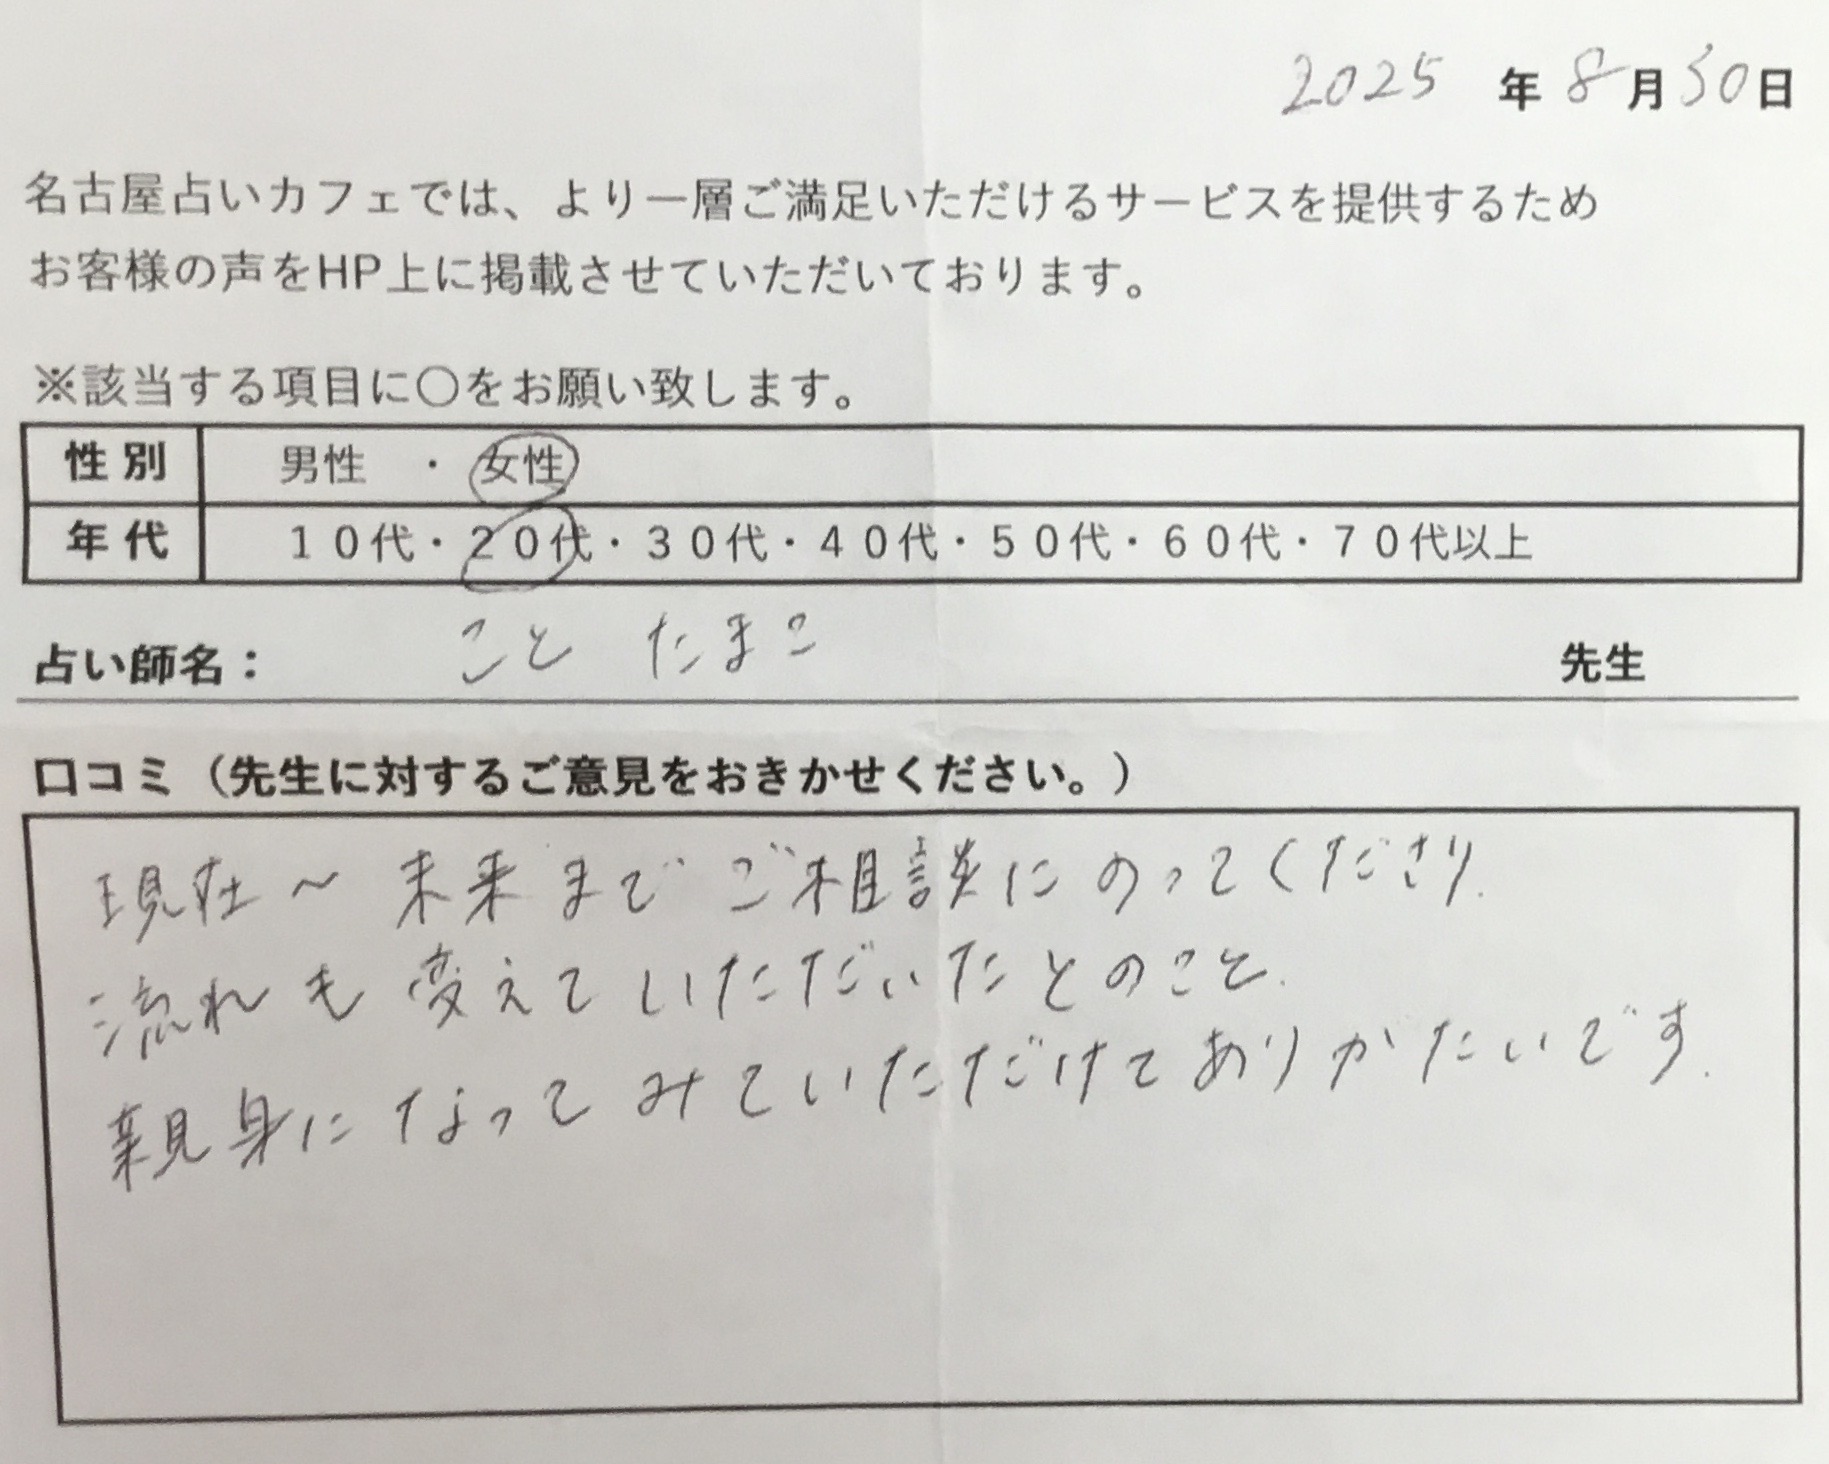 2025 年 8月30日
名古屋占いカフェでは、より一層ご満足いただけるサービスを提供するため
お客様の声をHP上に掲載させていただいております。
※該当する項目に〇をお願い致します。
性別 男性 ・ 女性
年代 10代・20代・30代・40代・50代・60代・70代以上
占い師名： こと たまこ 先生
口コミ（先生に対するご意見をおきかせください。）
現在～未来までご相談にのってくださり.
流れも変えていただいたとのこと.
親身になってみていただけてありがたいです.